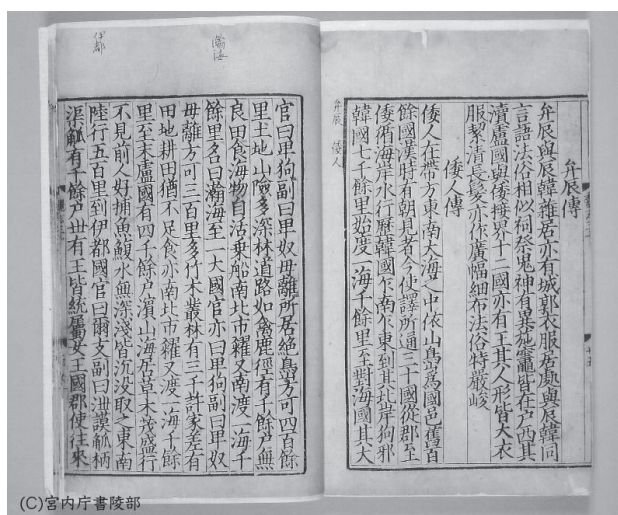 弁辰傳
弁辰與辰韓雜居亦有城郭衣服居處與辰韓同
言語法俗相似祠祭鬼神有異施竈皆在戶西其
瀆盧國與倭接界十二國亦有王其人形皆大衣
服絜清長髮亦作廣幅細布法俗特嚴峻
倭人傳
倭人在帶方東南大海之中依山島爲國邑舊百
餘國漢時有朝見者今使譯所通三十國從郡至
倭循海岸水行歴韓國乍南乍東到其北岸狗邪
韓國七千餘里始度一海千餘里至對海國其大
弁辰 倭人
瀚海
伊都
官曰卑狗副曰卑奴母離所居絶島方可四百餘
里土地山險多深林道路如禽鹿徑有千餘戶無
良田食海物自活乗船南北市糴又南渡一海千
餘里名曰瀚海至一大國官亦曰卑狗副曰卑奴
母離方可三百里多竹木叢林有三千許家差有
田地耕田猶不足食亦南北市糴又渡一海千餘
里至末盧國有四千餘戶濱山海居草木茂盛行
不見前人好捕魚鰒水無深淺皆沉没取之東南
陸行五百里到伊都國官曰爾支副曰泄謨觚柄
渠觚有千餘戶丗有王皆統屬女王國郡使往來
(C)宮内庁書陵部